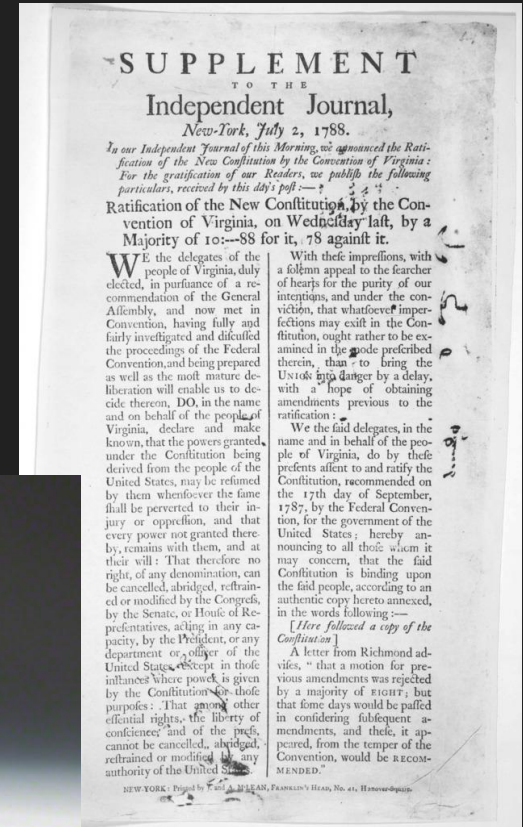 SUPPLEMENT
TO THE
Independent Journal,
New-York, July 2, 1788.
In our Independent Journal of this Morning, we announced the Rati-
fication of the New Conſtitution by the Convention of Virginia :
For the gratification of our Readers, we publiſh the following
particulars, received by this day's poſt :—
Ratification of the New Conſtitution, by the Con-
vention of Virginia, on Wedneſday laſt, by a
Majority of 10:---88 for it, 78 againſt it.
WE the delegates of the
people of Virginia, duly
elected, in purſuance of a re-
commendation of the General
Aſſembly, and now met in
Convention, having fully and
fairly inveſtigated and diſcuſſed
the proceedings of the Federal
Convention, and being prepared
as well as the moſt mature de-
liberation will enable us to de-
cide thereon, DO, in the name
and on behalf of the people of
Virginia, declare and make
known, that the powers granted
under the Conſtitution being
derived from the people of the
United States, may be reſumed
by them whenſoever the ſame
ſhall be perverted to their in-
jury or oppreſſion, and that
every power not granted there-
by, remains with them, and at
their will : That therefore no
right, of any denomination, can
be cancelled, abridged, reſtrain-
ed or modified by the Congreſs,
by the Senate, or Houſe of Re-
preſentatives, acting in any ca-
pacity, by the Preſident, or any
department or officer of the
United States, except in thoſe
inſtances where power is given
by the Conſtitution for thoſe
purpoſes : That among other
eſſential rights, the liberty of
conſcience, and of the preſs,
cannot be cancelled, abridged,
reſtrained or modified by any
authority of the United States.
With theſe impreſſions, with
a ſolemn appeal to the ſearcher
of hearts for the purity of our
intentions, and under the con-
viction, that whatſoever imper-
fections may exiſt in the Con-
ſtitution, ought rather to be ex-
amined in the mode preſcribed
therein, than to bring the
UNION into danger by a delay,
with a hope of obtaining
amendments previous to the
ratification :
We the ſaid delegates, in the
name and in behalf of the peo-
ple of Virginia, do by theſe
preſents aſſent to and ratify the
Conſtitution, recommended on
the 17th day of September,
1787, by the Federal Conven-
tion, for the government of the
United States ; hereby an-
nouncing to all thoſe whom it
may concern, that the ſaid
Conſtitution is binding upon
the ſaid people, according to an
authentic copy hereto annexed,
in the words following :—
[Here followed a copy of the
Conſtitution ]
A letter from Richmond ad-
viſes, " that a motion for pre-
vious amendments was rejected
by a majority of EIGHT ; but
that ſome days would be paſſed
in conſidering ſubſequent a-
mendments, and theſe, it ap-
peared, from the temper of the
Convention, would be RECOM-
MENDED."
NEW-YORK : Printed by J. and A. M'LEAN, FRANKLIN'S HEAD, No. 41, Hanover-square.